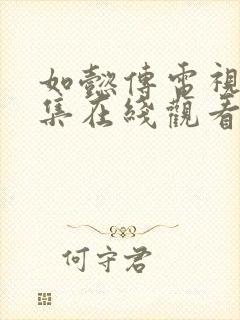 如懿傳電視
集在綫觀看
何守君